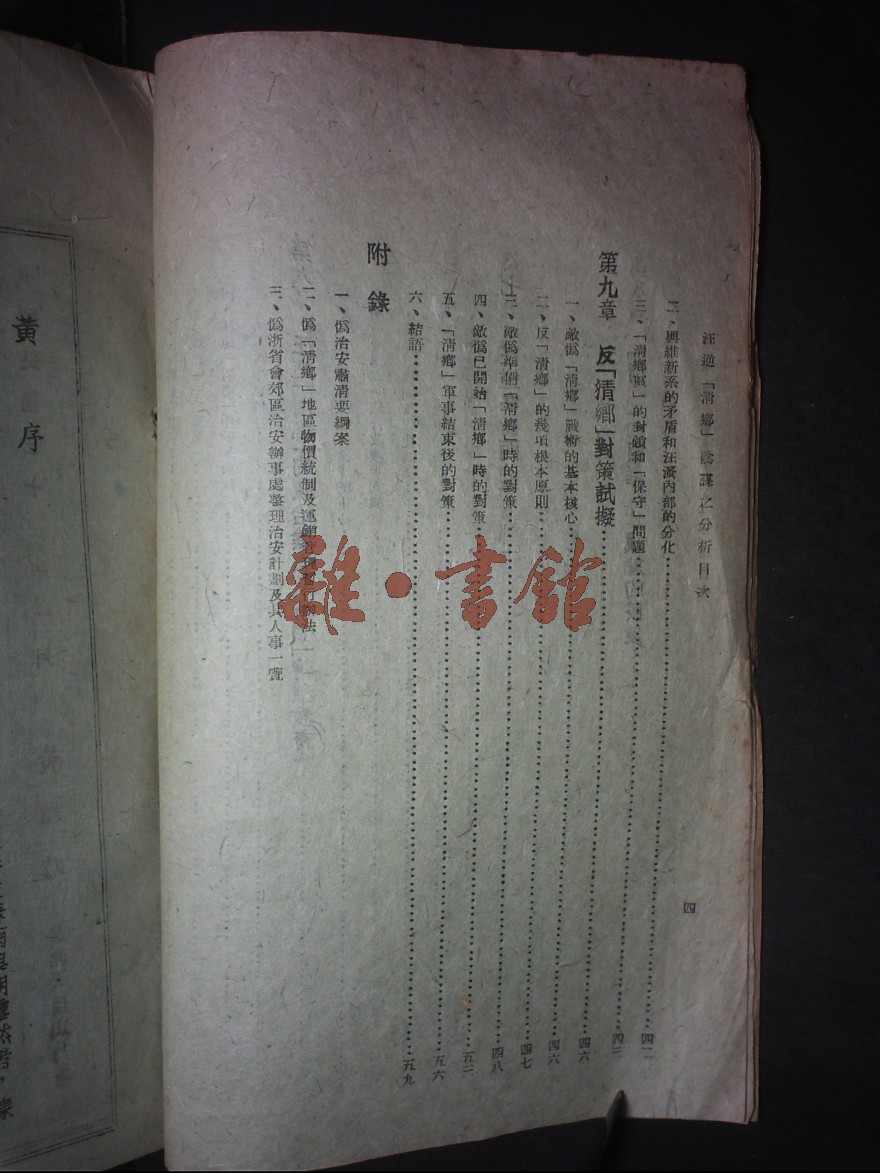 汪逆「清鄉」陰謀之分析目次
四
二、與維新系的矛盾和汪派內部的分化……四二
三、「清鄉區」的封鎖和「保守」問題……四三
第九章 反「清鄉」對策試擬……四六
一、敵僞「清鄉」戰術的基本核心……四六
二、反「清鄉」的幾項根本原則……四七
三、敵僞準備「清鄉」時的對策……四八
四、敵僞已開始「清鄉」時的對策……五二
五、「清鄉」軍事結束後的對策……五六
六、結語……五九
附錄
一、僞治安肅清要綱案
二、僞「清鄉」地區物價統制及運銷
三、僞浙省會郊區治安辦事處整理治安計劃及其人事一覽
雜·書館
黃序